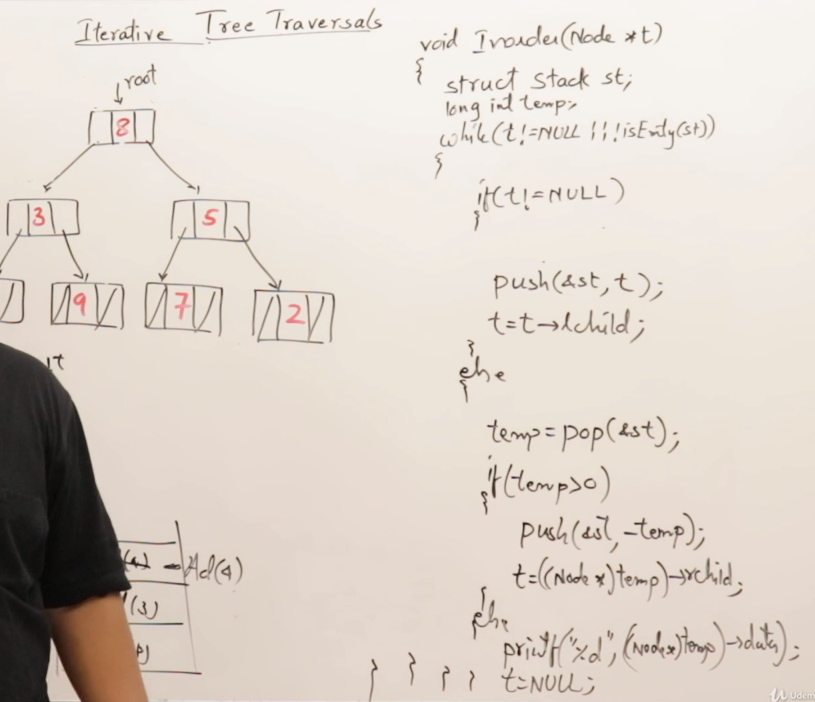 Iterative Tree Traversals
root
8
3
5
9
7
2
t
Ad(4)
(3)
void Inorder(Node *t)
{
struct Stack st;
long int temp;
while(t!=NULL ||!isEmty(st))
{
if(t!=NULL)
{
push(&st, t);
t=t→lchild;
}
else
{
temp=pop(&st);
if(temp>0)
{
push(&st, -temp);
t=((Node *)temp)→rchild;
}
else
{
printf("%d", (Node*)temp)→data);
t=NULL;
} } } }
Udem